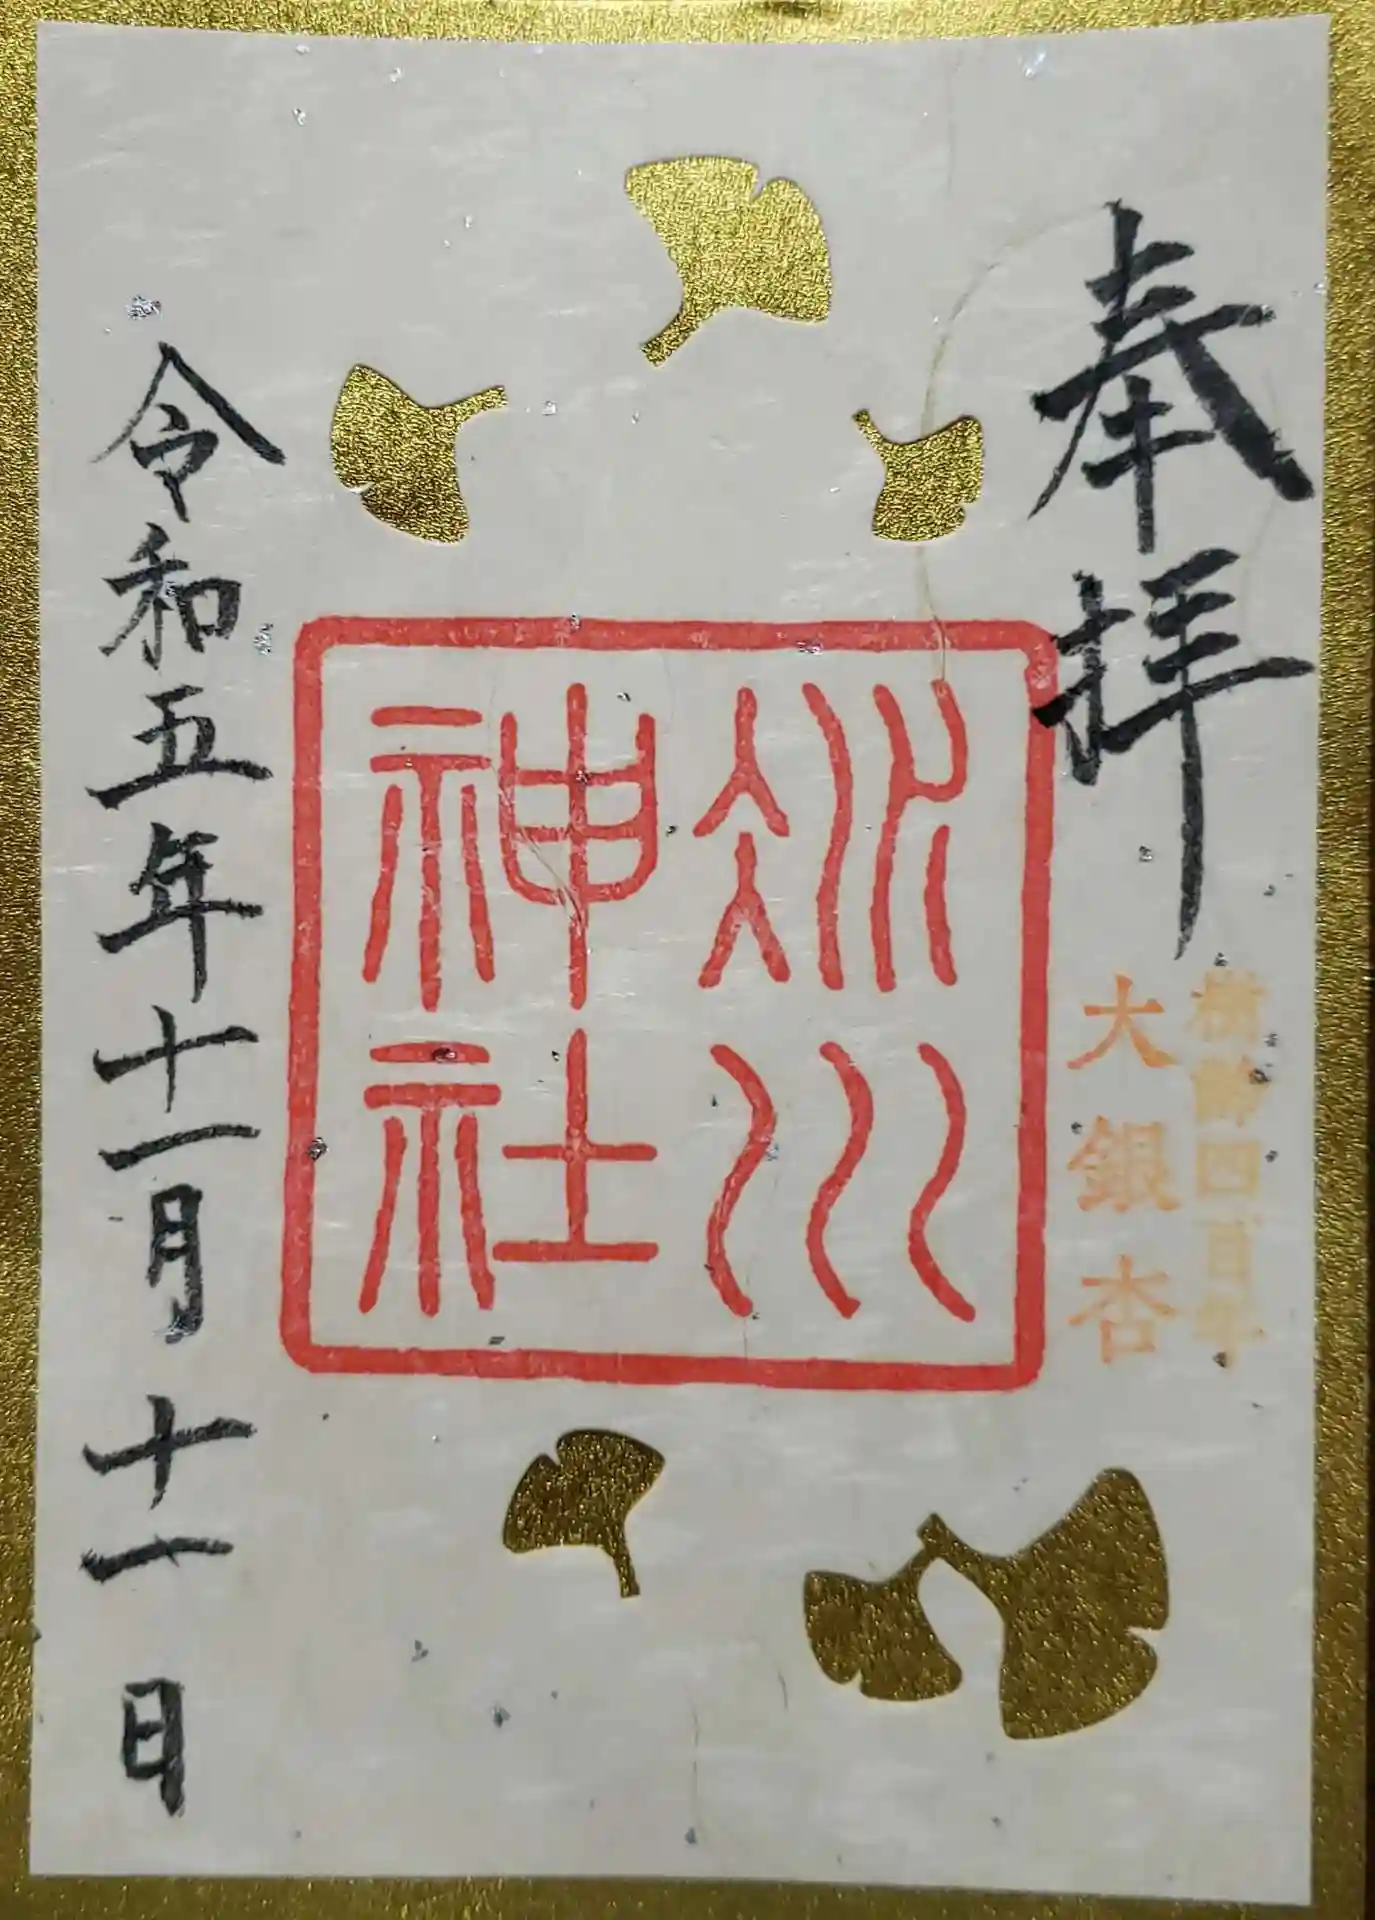 奉拝
樹齢四百年
大銀杏
冰川
神社
令和五年十一月十一日